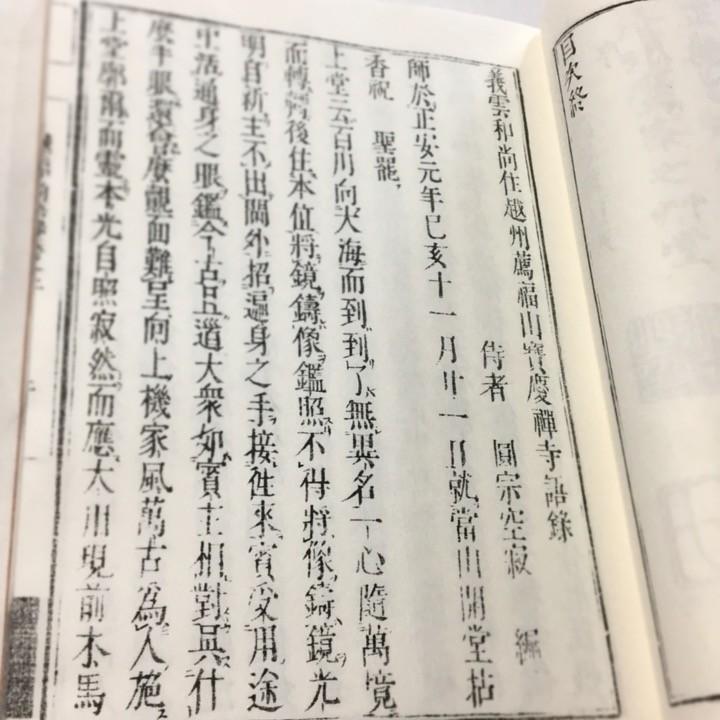 目次終
義雲和尚住越州薦福山寶慶禪寺語錄
侍者 圓宗空寂 編
師於正安元年己亥十一月廿一日就當山開堂拈
香祝 聖罷
上堂云百川向大海而到到了無異名一心隨萬境
而轉轉後住本位將鏡鑄像鑑照不得將像鑄鏡光
明自新主不出關外招遍身之手接往來賓受用途
中活通身之眼鑑今古且道大衆如賓主相對具什
麼手眼還會麼覿面難呈向上機家風萬古為人施
上堂廓爾而靈本光自照寂然而應大用現前木馬